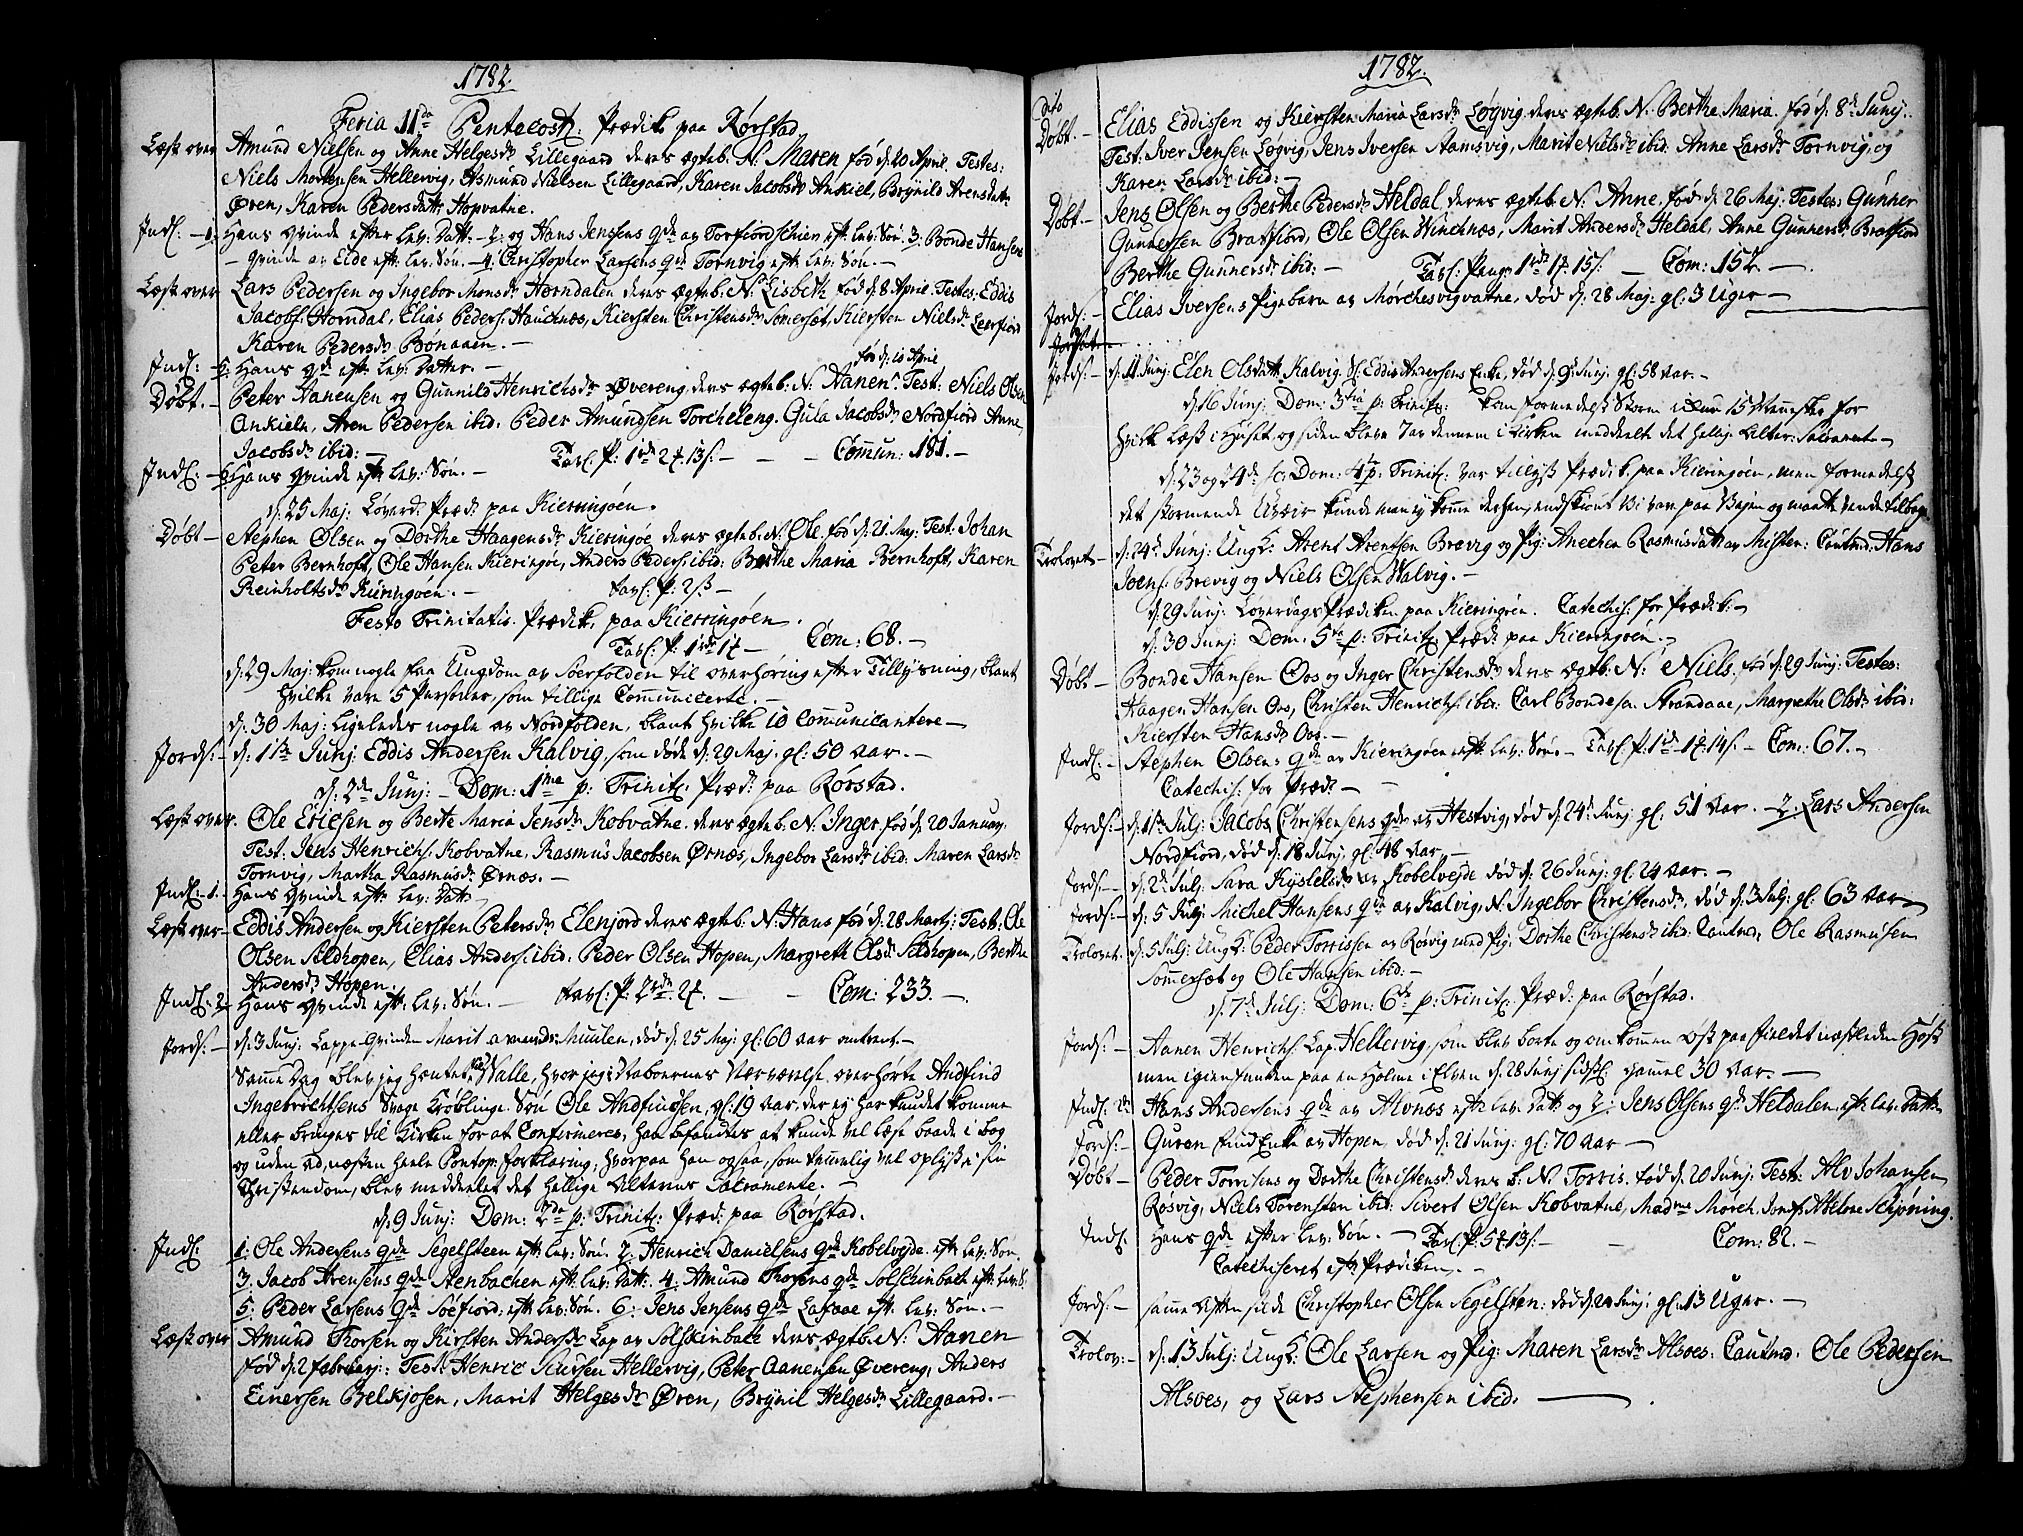 1782.
Feria IIda Pentecost: Prædik: paa Rørstad
Læst over Amund Nielsen og Anne Helgesdr Lillegaard deres ægteb. N: Maren fød d: 20 April. Testes:
Niels Mortensen Hellervig, Asmund Nielsen Lillegaard, Karen Jacobsdr Ankiel, Brynild Arensdatr
Øren, Karen Pedersdattr Hopvatne.
Indl: - 1: Hans Qvinde efter lev: Datt: - 2: og Hans Jensens Qde av Torfiordschien eft: lev: Søn. 3: Bonde Hansens
- Qvinde av Elde eft: lev: Søn. - 4: Christopher Larsens Qde Tornvig eft: lev: Søn. -
Læst over Lars Pedersen og Ingebor Monsdr Horndalen deres ægteb. N: Lisbeth fød d: 8 April. Testes: Eddis
Jacobs: Horndal, Elias Peders: Hauchnæs, Kiersten Christensdr Somerset, Kiersten Nielsdr Leerfiord
Karen Pedersdr Bonaaen. -
Indl: - 5: Hans Qde eft: lev: Datter. - fød d: 10 April
Døbt. - Peter Aanensen og Gunnild Henrichsdr Øvereng deres ægteb: N: Aanen. Test: Niels Olsen
Ankieln, Aren Pedersen ibid: Peder Amundsen Torcheleng. Gula Jacobsdr Nordfiord Anne
Jacobsdr ibid: - Tavl: P: 1rd 2 13 s: - - - Comun: 181. -
Indl: - 6: Hans Qvinde eft: lev: Søn. -
d: 25 Maj: Løverd: Præd: paa Kierringøen.
Døbt - Stephen Olsen og Dorthe Haagensdr Kieringøe deres ægteb: N: Ole. fød d: 21 Maj: Test: Johan
Peter Bernhoft, Ole Hansen Kieringøe, Anders Peders: ibid: Berthe Maria Bernhoft, Karen
Reinholtsdr Kieringøen. - Tavl: P: 2 s -
Festo Trinitatis. Prædik: paa Kierringøen.
Tavl: P: 1rd 1 - Com: 68. -
d: 29 Maj: kom nogle faa Ungdom av Soerfolden til overhøring efter Tillysning, blant
hvilke vare 5 Personer, som tillige Comunicerte. -
d: 30 Maj: ligeledes nogle av Nordfolden, blant hvilke 10 Comunicantere -
Jords: - d: 1ste Junj: Eddis Andersen Kalvig, som døde d: 29 Maj. gl: 50 Aar. -
d: 2den Junj: - Dom: 1ma p: Trinit: Præd: paa Rørstad.
Læst over. Ole Ericsen og Berte Maria Jensdr Kobvatne. deres ægteb: N: Inger fød d: 20 Januar:
Test: Jens Henrichs: Kobvatne, Rasmus Jacobsen Ørnæs, Ingebor Larsdr ibid: Maren Larsdr
Tornvig, Martha Rasmusdr Ørnæs. -
Indl: 1. Hans Qvinde eft: lev: Datt. -
Læst over - Eddis Andersen og Kiersten Petersdr Elenjord deres ægteb: N: Hans fød d: 28 Martj: Test: Ole
Olsen Sildhopen, Elias Anders: ibid: Peder Olsen Hopen, Margreth Olsdr Sildhopen, Berthe
Andersdr Hopen.
Indl: 2. Hans Qvinde eft: lev: Søn. - Tavl: P: 2rd 2. - - Com: 233. -
Jords: - d: 3 Junj: Lappe Qvinden Marit Amundsdr Muulen, død d: 25 Maj: gl: 60 Aar omtrent. -
Samme Dag blev jeg hæntet til Walle, hvor jeg i Naboernes Nærværelse overhørte Andfind
Ingebrichtsens svage Krøblinge Søn Ole Andfindsen, gl: 19 Aar, der ey har kundet komme
eller bringes til Kirken for at Confirmeres, han befandtes at kunde vel læse baade i bog
og uden ad, næsten heele Pontop: forklaring, hvorpaa han ogsaa, som temmelig vel oplyst i sin
Christendom, blev meddeelet det hellige Alterens Sacramente. -
d: 9 Junj: Dom: 2da p: Trinit: Præd: paa Rørstad.
Indl: 1: Ole Andersens Qde Segelsteen eft: lev: Søn. 2: Henrich Danielsens Qde Kobelveyde eft: lev: Søn.
3: Jacob Arensens Qde Stenbachen eft: lev: Datt: 4: Amund Thosens Qde Solschinbach eft: lev: S.
5: Peder Larsens Qde Søefiord: eft: lev: Søn. 6: Jens Jensens Qde Laxaae eft: lev: Søn. -
Læst over Amund Thorsen og Kirsten Andersdr Lap av Solskinbach deres ægteb: N: Aanen
fød d: 2 Februarj: Test: Henric Siursen Hellervig, Peter Aanensen Øvereng, Anders
Einersen Belkjosen, Marit Helgesdr Øren, Brynil Helgesdr Lillegaard. -
1782.
dito
Døbt. - Elias Eddissen og Kiersten Maria Larsdr Løgvig deres ægteb. N: Berthe Maria. fød d: 8de Junj.
Test: Iver Jensen Løgvig, Jens Iversen Aamsvig, Marit Nielsdr ibid: Anne Larsdr Tornvig, og
Karen Larsdr ibid: -
Døbt - Jens Olsen og Berthe Pedersdr Heldal deres ægteb. N: Anne. fød d: 26 Maj: Testes: Gunner
Gunnersen Bratfiord, Ole Olsen Winchnæs, Marit Andersdr Heldal, Anne Gunnersdr Bratfiord
Berthe Gunnersdr ibid: - Tavl: Penge 1rd 1 15 s: - Com: 152. -
Jords: - Elias Iversens Pigebarn av Mørchesvigvatne, død d: 28 Maj: gl: 3 Uger -
Jords: - d: 11 Junj: Elen Olsdatt: Kalvig Sl: Eddis Andersens Enke, død d: 9de Junj: gl: 58 Aar. -
d: 16 Junj: Dom: 3tia p: Trinit: kom formedelst Storm ikkun 15 Mennesker for
hvilke læst i Huset, og siden bleve 7 av dennem i Kirken meddeelt det hellig: Alter: Sacrament -
d: 23 og 24de sc: Dom: 4 p: Trinit: var tillyst Prædik: paa Kieringøen, men formedelst
det stormende Uveir kunde man ey komme derhen, endskiønt Vi var paa Vejen og maatte vende tilbage
Trolovet - d: 24de Junj: Ungk: Arent Arentsen Brevig og Pig: Anechen Rasmusdatt av Misten: Cautnd: Hans
Joens: Brevig og Niels Olsen Walvig. -
d: 29 Junj: Løverdags Prædiken paa Kieringøen. Catechis: for Prædik: -
d: 30 Junj: Dom: 5ta p: Trinit: Præd: paa Kieringøen. -
Døbt - Bonde Hansen Oos og Inger Christensdr deres ægteb: N: Niels. fød d: 29 Junj: Testes:
Haagen Hansen Oos, Christen Henrichs: ibid: Carl Bondesen Strandaae, Margrethe Olsdr ibid:
Kiersten Hansdr Oos. -
Indl: - Stephen Olsens Qde av Kieringøen eft: lev: Søn. - Tavl: P: 1rd 1 14 s: - Com: 67. -
Catechis: for Præd: -
Jords: - d: 1ste Julj: Jacobs Christensens Qde av Hestvig, død d: 24de Junj: gl: 51 Aar. - 2. Lars Andersen
Nordfiord, død d: 18 Junj: gl: 48 Aar. -
Jords: - d: 2de Julj: Sara Kyselsdr av Kobelveyde død d: 26 Junj: gl: 24 Aar. -
Jords: - d: 5 Julj: Michel Hansens Qde av Kalvig, N: Ingebor Christensdr, død d: 3 Julj: gl: 63 Aar -
Trolovet. d: 5 Julj: Ungk: Peder Torrissen av Røsvig med Pig: Dorthe Christensdr ibid: Cautnd: Ole Rasmusen
Sommerset og Ole Hansen ibid: -
d: 7de Julj: Dom: 6ta p: Trinit: Præd: paa Rørstad.
Jords: - Aanen Henrichs: Lap, Hellervig, som blev borte og omkommen Øst paa Fieldet næstleden Høst
men igienfunden paa en Holme i Elven d: 28 Junj sidstl: gamel 30 Aar. -
Indl: 1: Hans Andersens Qde av Alvnos eft: lev: Datt: og 2: Jens Olsens Qde Heldalen eft: lev: Datt:
Jords: - Guren Find Enke av Hopen, død d: 21 Junj: gl: 70 Aar -
Døbt - Peder Torrisens og Dorthe Christensdr deres b: N: Torris. fød d: 20 Junj: Test: Alv Johansen
Røsvig, Niels Torensten ibid: Sivert Olsen Kobvatne, Madme Mørch. Jomf: Abelone Schjøning.
Indl: Hans Qde efter lev: Søn. - Tavl: P: 5 13 s: - - Com: 82. -
Catechiseret eft: Prædiken. -
Jords: - samme Aften silde Christopher Olsen Segelsten: død d: 20 Junj: gl: 13 Uger. -
Trolov: - d: 13 Julj: Ungk: Ole Larsen og Pig: Maren Larsdr Alsoes: Cautnd: Ole Pedersen
Alsoes, og Lars Stephensen ibid. -